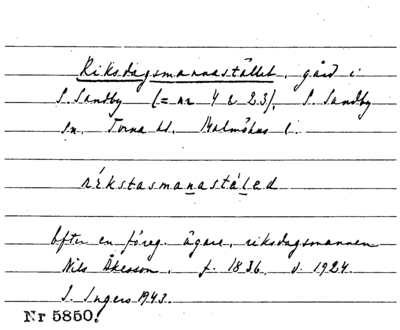 Riksdagsmannastället, gård i
S. Sandby (= nr 4 & 23), S. Sandby
sn, Torna hd, Malmöhus l.
ríkstasmanastáled
Efter en föreg. ägare, riksdagsmannen
Nils Åkesson, f. 1836, d. 1924.
I. Ingers 1943.
Nr 5850.